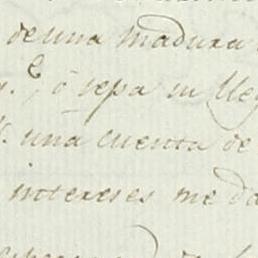 de una madura
e, ó sepa su lleg
una cuenta de
intereses me da